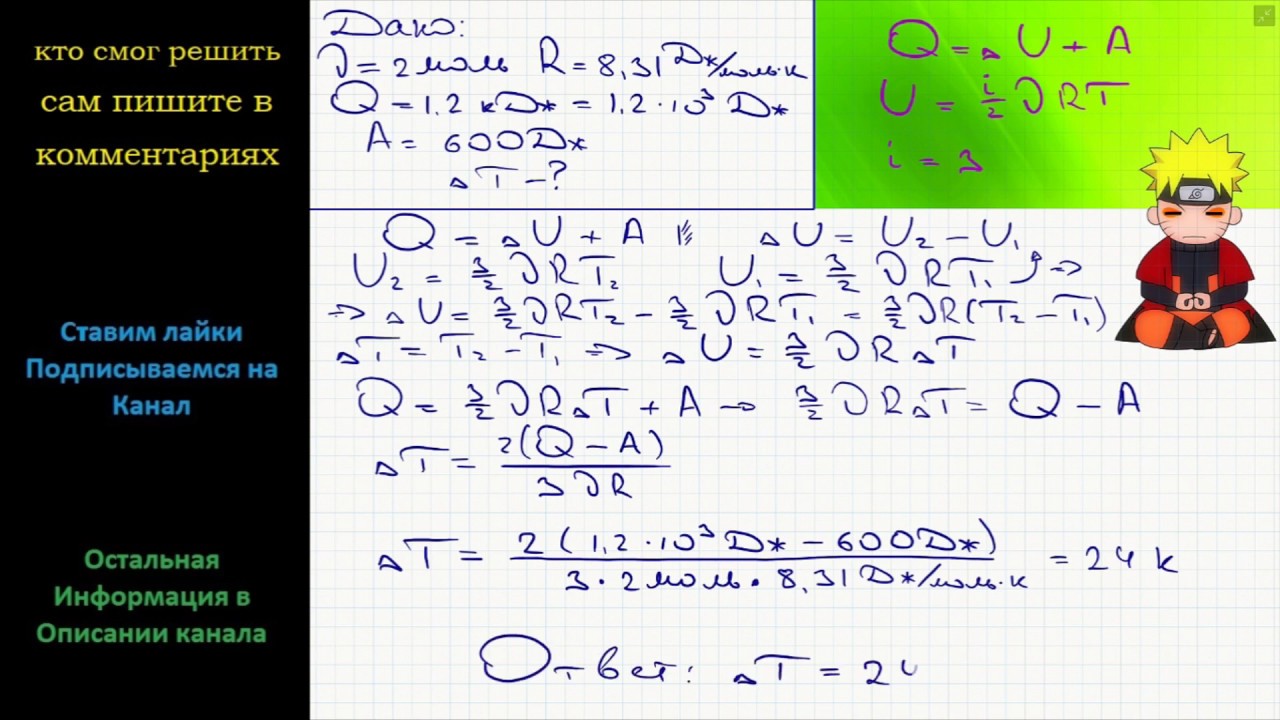 кто смог решить
сам пишите в
комментариях
Ставим лайки
Подписываемся на
Канал
Остальная
Информация в
Описании канала
Дано:
ν = 2 моль R = 8,31 Дж/моль·к
Q = 1,2 кДж = 1,2 · 10³ Дж
A = 600 Дж
ΔT – ?
Q = ΔU + A
U = i/2 νRT
i = 3
Q = ΔU + A ΔU = U₂ – U₁
U₂ = 3/2 νRT₂ U₁ = 3/2 νRT₁ ⇒
⇒ ΔU = 3/2 νRT₂ – 3/2 νRT₁ = 3/2 νR(T₂ – T₁)
ΔT = T₂ – T₁ ⇒ ΔU = 3/2 νRΔT
Q = 3/2 νRΔT + A → 3/2 νRΔT = Q – A
ΔT = 2(Q – A) / 3νR
ΔT = 2(1,2 · 10³ Дж – 600 Дж) / 3 · 2 моль · 8,31 Дж/моль·к = 24 к
Ответ: ΔT = 24